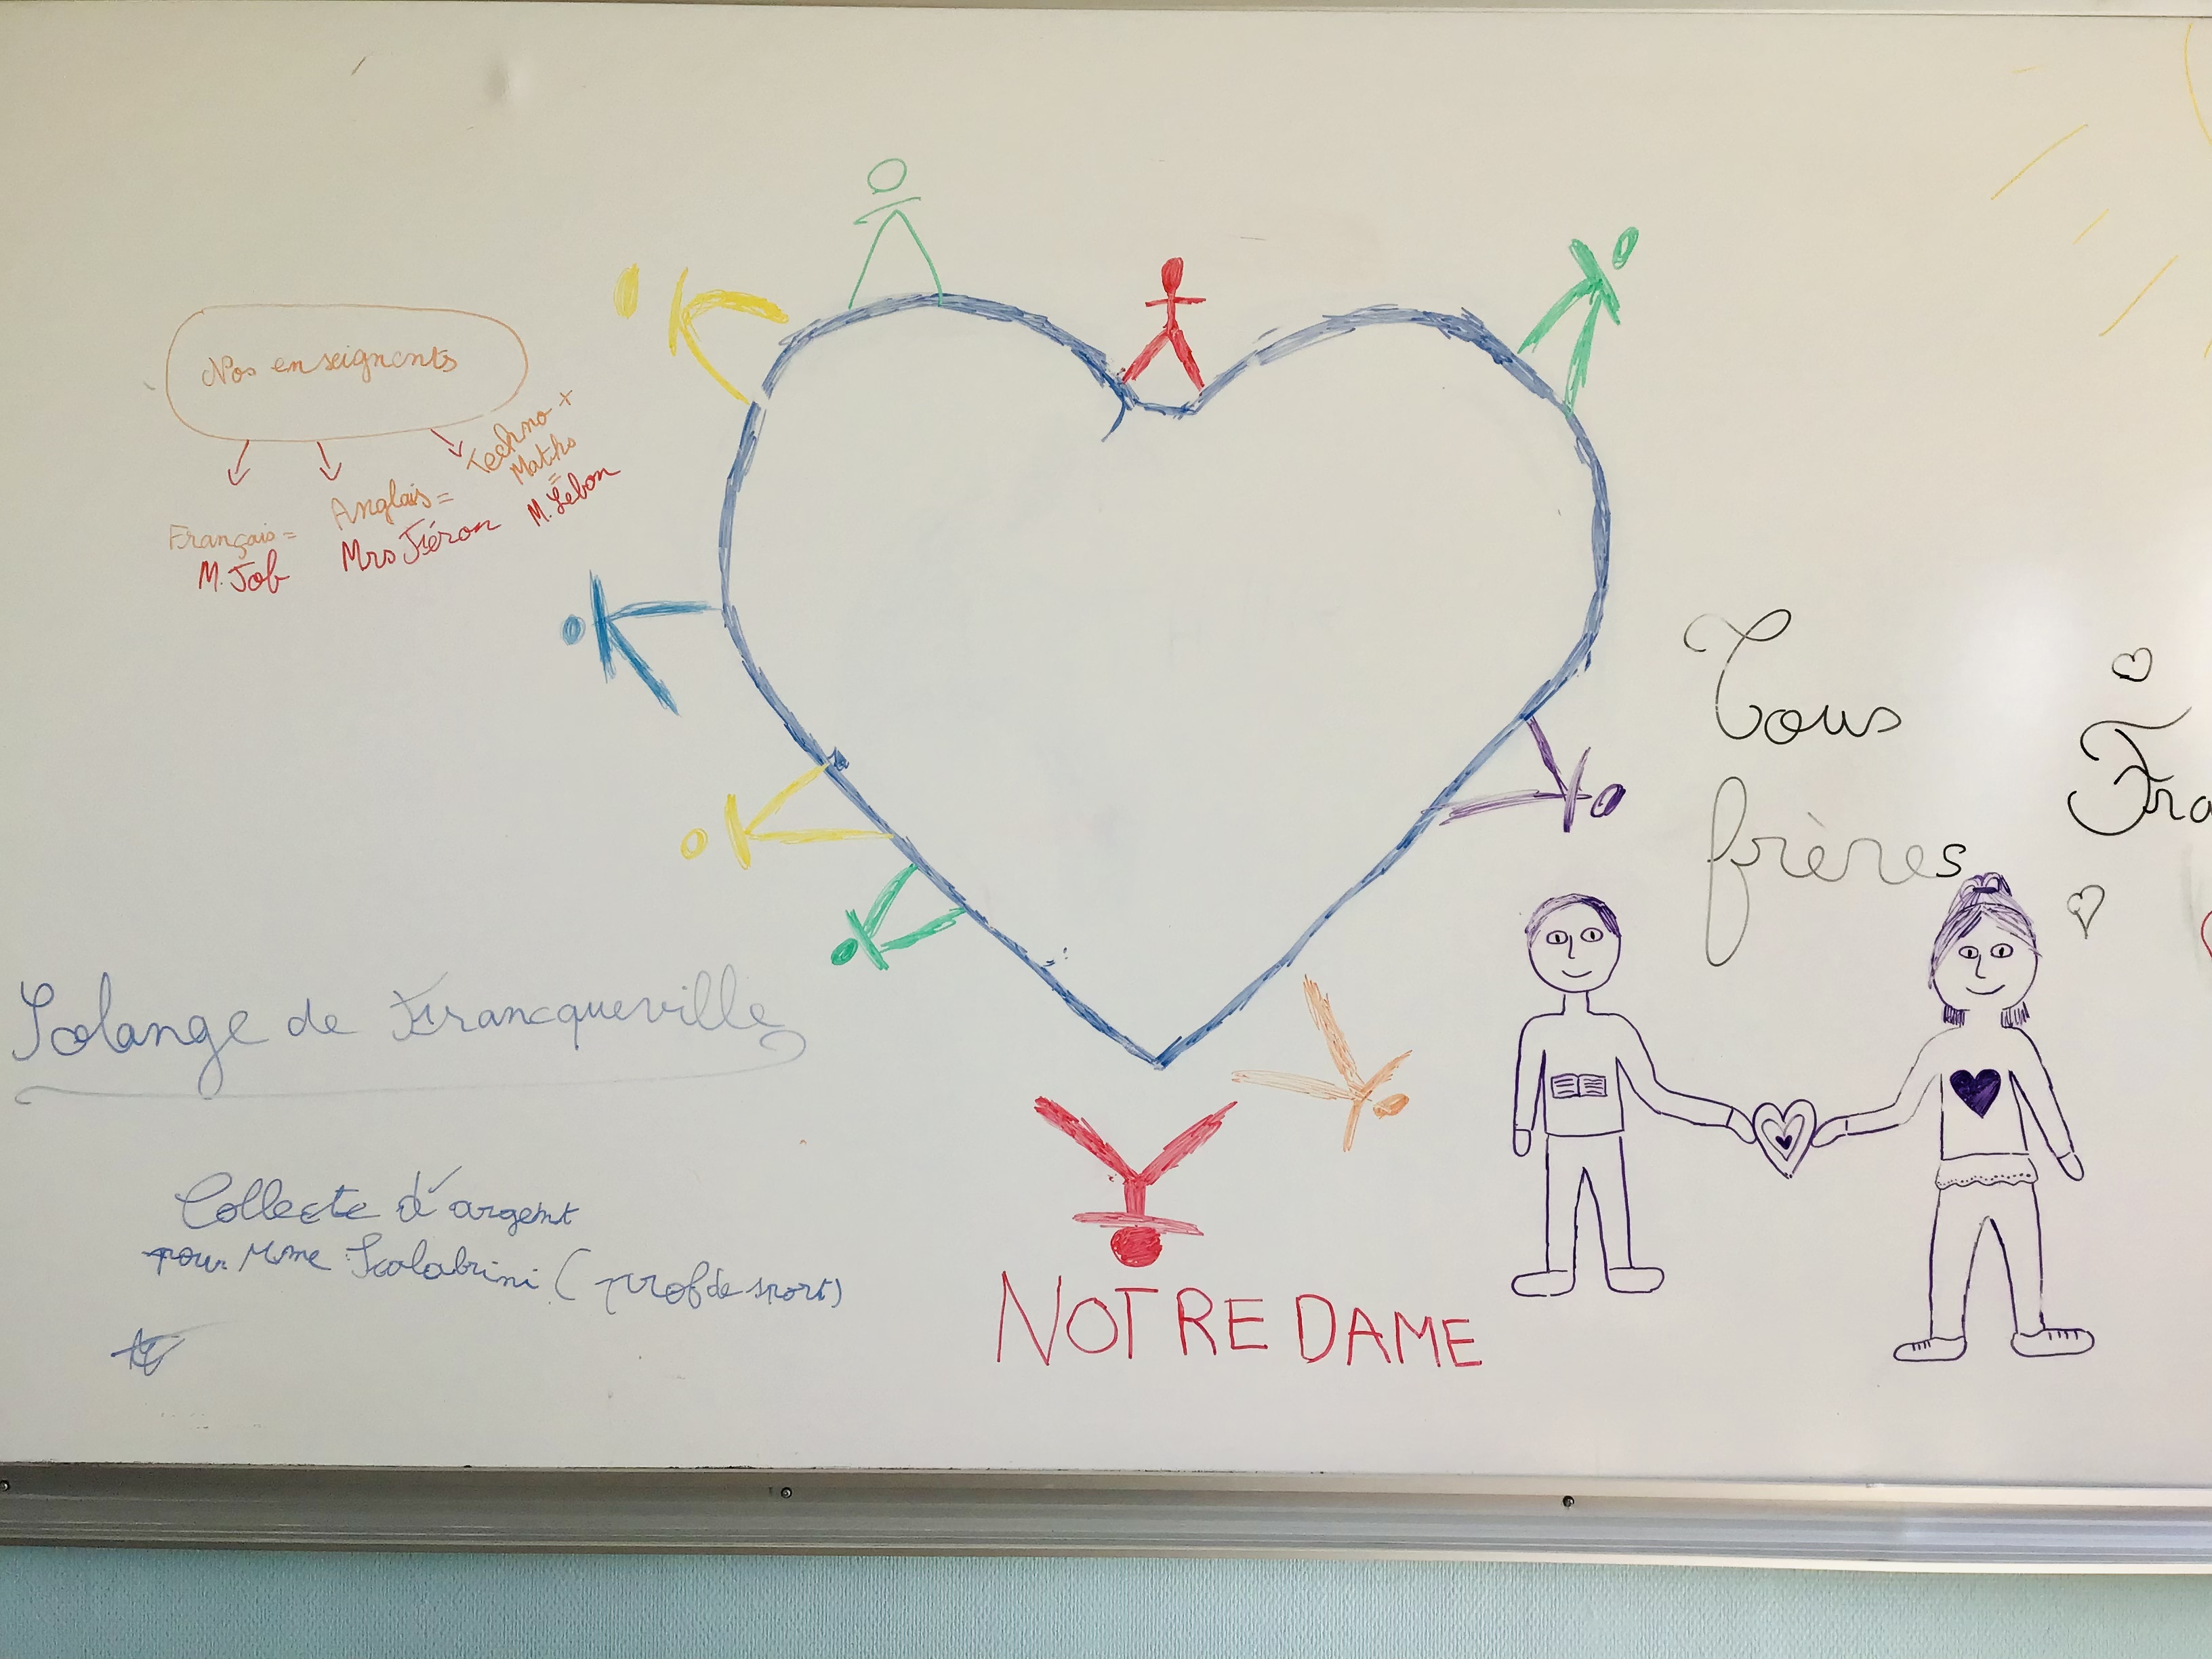 Nos enseignants
Français =
M. Job
Anglais =
Mrs Fiéron
Techno +
Maths
=
M. Lebon
Tous
frères
Fra
Solange de Francqueville
Collecte d'argent
pour Mme Scolabrini (prof de sport)
NOTRE DAME